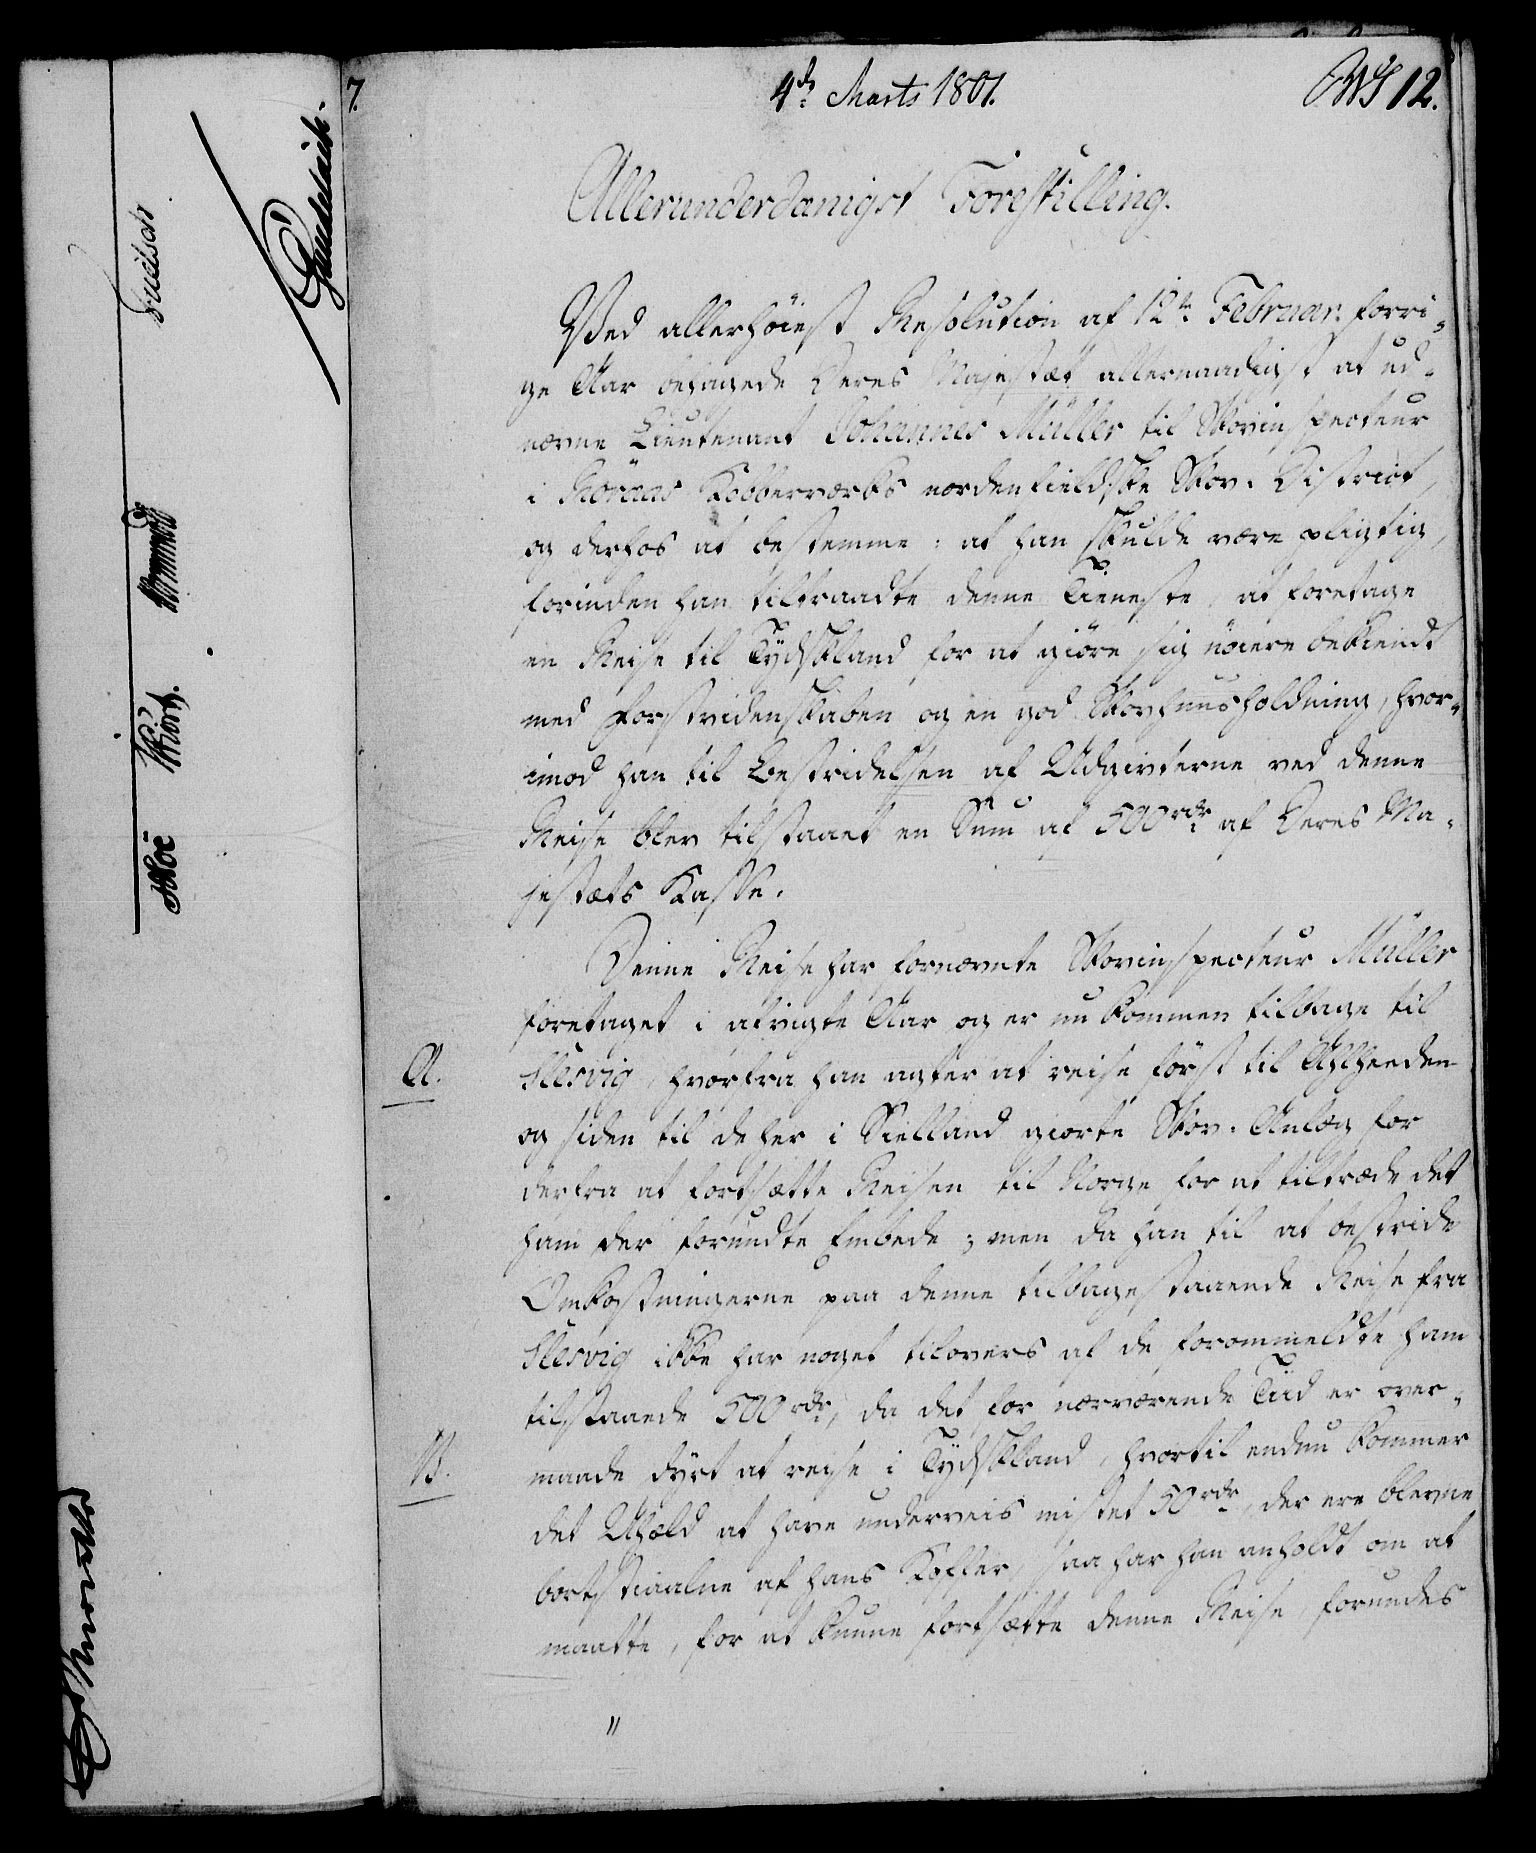 7.
4de Marts 1801.
12.
Allerunderdanigst Forestilling.
Ved allerhöiest Resolution af 12te Februar: forri-
ge Aar behagede Deres Majestæt allernaadigst at ud-
nævne Lieutenant Johannes Müller til Skovinspecteur
i Röraas Kobberværks nordenfieldske Skov-District,
og derhos at bestemme: at han skulde være pligtig,
forinden han tiltraadte denne Tieneste, at foretage
en Reise til Tydskland for at giöre sig nöiere bekiendt
med Forstvidenskaben og en god Skovhuusholdning, hvor-
imod han til Bestridelsen af Udgivterne ved denne
Reise blev tilstaaet en Sum af 500rdr af Deres Ma-
jestæts Kasse.
Denne Reise har fornævnte Skovinspecteur Müller
foretaget i afvigte Aar og er nu kommen tilbage til
A.
Slesvig, hvorfra han agter at reise först til Ahlheeden
og siden til de her i Sielland giorte Skov-Anlæg for
derfra at fortsætte Reisen til Norge for at tiltræde det
ham der forundte Embede; men da han til at bestride
Omkostningerne paa denne tilbagestaaende Reise fra
Slesvig ikke har noget tilovers af de forommeldte ham
tilstaaede 500rdr, da det for nærværende Tiid er over-
B.
maade dyrt at reise i Tydskland, hvortil endnu kommer
det Uheld at have underveis mistet 50rdr, der ere blevne
bortstiaalne af hans Koffer, saa har han anholdt om at
maatte, for at kunne fortsætte denne Reise, forundes
"